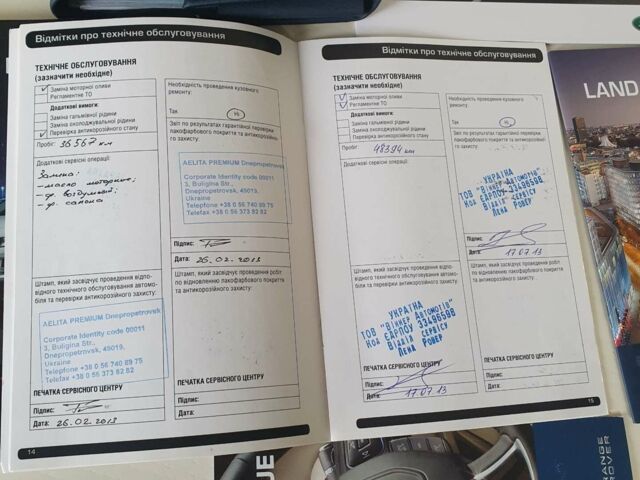 Відмітки про технічне обслуговування
ТЕХНІЧНЕ ОБСЛУГОВУВАННЯ
(зазначити необхідне)
Заміна моторної оливи
Регламентне ТО
Додаткові вимоги:
Заміна гальмівної рідини
Заміна охолоджувальної рідини
Перевірка антикорозійного стану
Пробіг: 36567 км
Додаткові сервісні операції:
Заміна:
- масло моторне;
- ф. воздушный;
- ф. салона
Необхідність проведення кузовного
ремонту:
Так
Ні
Звіт по результатах гарантійної перевірки
лакофарбового покриття та антикорозійно-
го захисту:
AELITA PREMIUM Dnepropetrovsk
Corporate Identity code 00011
3, Buligina Str.,
Dnepropetrovsk, 49019,
Ukraine
Telephone +38 0 56 740 89 75
Telefax +38 0 56 373 82 82
Підпис:
Дата: 26.02.2013
Штамп, який засвідчує проведення відпо-
відного технічного обслуговування автомо-
біля та перевірки антикорозійного захисту:
AELITA PREMIUM Dnepropetrovsk
Corporate Identity code 00011
3, Buligina Str.,
Dnepropetrovsk, 49019,
Ukraine
Telephone +38 0 56 740 89 75
Telefax +38 0 56 373 82 82
ПЕЧАТКА СЕРВІСНОГО ЦЕНТРУ
Підпис:
Дата: 26.02.2013
Штамп, який засвідчує проведення робіт
по відновленню лакофарбового покриття
та антикорозійного захисту:
ПЕЧАТКА СЕРВІСНОГО ЦЕНТРУ
Підпис:
Дата:
14
Відмітки про технічне обслуговування
ТЕХНІЧНЕ ОБСЛУГОВУВАННЯ
(зазначити необхідне)
Заміна моторної оливи
Регламентне ТО
Додаткові вимоги:
Заміна гальмівної рідини
Заміна охолоджувальної рідини
Перевірка антикорозійного стану
Пробіг: 48394 км
Додаткові сервісні операції:
Необхідність проведення кузовного
ремонту:
Так
Ні
Звіт по результатах гарантійної перевірки
лакофарбового покриття та антикорозійно-
го захисту:
УКРАЇНА
ТОВ "Віннер Автомотів"
Код ЄДРПОУ 33496598
Відділ сервісу
Ленд Ровер
Підпис:
Дата: 17.07.13
Штамп, який засвідчує проведення відпо-
відного технічного обслуговування автомо-
біля та перевірки антикорозійного захисту:
УКРАЇНА
ТОВ "Віннер Автомотів"
Код ЄДРПОУ 33496598
Відділ сервісу
Ленд Ровер
ПЕЧАТКА СЕРВІСНОГО ЦЕНТРУ
Підпис:
Дата: 17.07.13
Штамп, який засвідчує проведення робіт
по відновленню лакофарбового покриття та
антикорозійного захисту:
ПЕЧАТКА СЕРВІСНОГО ЦЕНТРУ
Підпис:
Дата:
15
LAND
RANGE
ROVER
UE